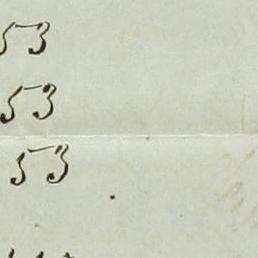 53
53
53